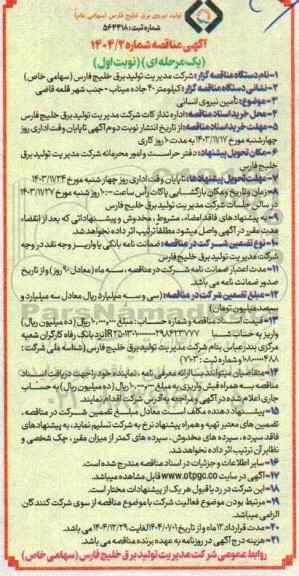 تولید نیروی برق خلیج فارس (سهامی عام)
شماره ثبت: ۵۶۴۴۱۸
آگهی مناقصه شماره ۱۴۰۴/۲
(یک مرحله ای) (نوبت اول)
۱-نام دستگاه مناقصه گزار: شرکت مدیریت تولید برق خلیج فارس (سهامی خاص)
۲-نشانی دستگاه مناقصه گزار: کیلومتر ۴۰ جاده میناب - جنب شهر قلعه قاضی
۳-موضوع: تأمین نیروی انسانی
۴-محل خرید اسناد مناقصه: اداره تدارکات شرکت مدیریت تولید برق خلیج فارس
۵-مهلت خرید اسناد مناقصه: از تاریخ انتشار نوبت دوم آگهی تا پایان وقت اداری روز
چهارشنبه مورخ ۱۴۰۴/۱۱/۱۷ به مدت ۶ روز کاری
۶-مکان تحویل پیشنهاد: دفتر حراست و امور محرمانه شرکت مدیریت تولید برق
خلیج فارس
۷-مهلت تحویل پیشنهادها: تا پایان وقت اداری روز چهار شنبه مورخ ۱۴۰۴/۱۱/۲۴
۸-زمان و تاریخ و مکان بازگشایی پاکات رأس ساعت ۱۰:۰۰ روز شنبه مورخ ۱۴۰۴/۱۱/۲۷
در سالن جلسات شرکت مدیریت تولید برق خلیج فارس
۹-به پیشنهادهای فاقد امضاء، مشروط، مخدوش و پیشنهاداتی که بعد از انقضاء
مدت مقرر در آگهی واصل میشود مطلقا ترتیب اثر داده نخواهد شد.
۱۰-نوع تضمین شرکت در مناقصه: ضمانت نامه بانکی یا واریز وجه نقد در وجه
شرکت مدیریت تولید برق خلیج فارس
۱۱-مدت اعتبار ضمانت نامه شرکت در مناقصه، سه ماه (معادل ۹۰ روز) و از تاریخ
صدور ضمانت نامه می باشد.
۱۲-مبلغ تضمین شرکت در مناقصه: (سی و سه میلیارد ریال معادل سه میلیارد و
سیصد میلیون تومان)
۱۳-قیمت اسناد مناقصه و شماره حساب: مبلغ ۱۰،۰۰۰،۰۰۰ ریال (ده میلیون ریال)
واریز به حساب شبا نزد بانک رفاه کارگران شعبه
مرکزی بندرعباس بنام شرکت مدیریت تولید برق خلیج فارس (شناسه ملی شرکت:
و شماره ثبت: ۷۱۰۳)
۱۴-متقاضیان میتوانند با ارائه معرفی نامه، نماینده خود را جهت دریافت اسناد
مناقصه به همراه فیش واریزی به مبلغ ۱۰،۰۰۰،۰۰۰ ریال (ده میلیون ریال) به حساب
جاری اعلام شده در آگهی و مراجعه به آدرس شرکت اقدام نمایند.
۱۵-پیشنهاد دهنده مکلف است معادل مبلغ تضمین شرکت در مناقصه،
تضمین های معتبر تهیه و همراه پیشنهاد نرخ به شرکت تسلیم نماید، به پیشنهادهای
فاقد سپرده، سپرده های مخدوش، سپرده های کمتر از میزان مقرر، چک شخصی و
نظایر آن ترتیب اثر داده نخواهد شد.
۱۶-سایر اطلاعات و جزئیات در اسناد مناقصه مندرج شده است.
۱۷-آگهی در سایت www.otpgc.co قابل مشاهده میباشد.
۱۸-این شرکت در رد یا قبول هر یک از پیشنهادات مختار است.
۱۹-مرتبط بودن موضوع فعالیت شرکت با موضوع مناقصه از سوی شرکت کنندگان
الزامی میباشد.
۲۰-مدت قرارداد ۱۲ ماه و از تاریخ ۱۴۰۴/۰۷/۰۱ لغایت ۱۴۰۴/۱۲/۲۹ می باشد.
۲۱-هزینه درج آگهی در روزنامه به عهده برنده مناقصه می باشد.
روابط عمومی شرکت مدیریت تولید برق خلیج فارس (سهامی خاص)